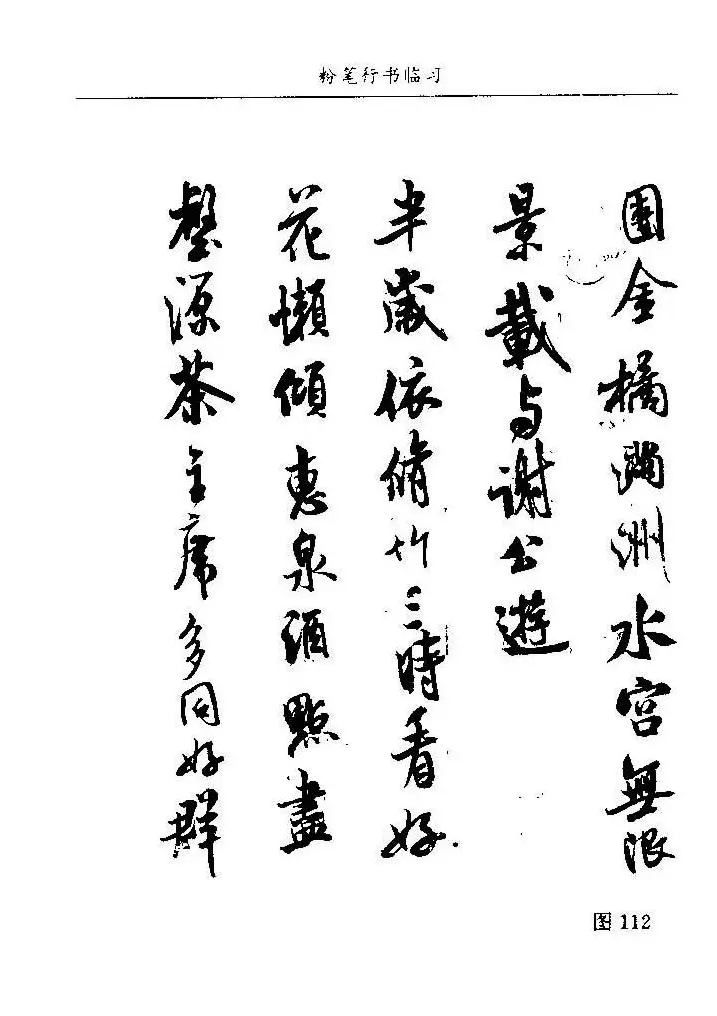 粉笔行书临习
團金橘滿洲水宮無限
景載与謝公遊
半歲依脩竹三時看好
花懶傾惠泉酒點盡
壑源茶主席多同好群
图 112